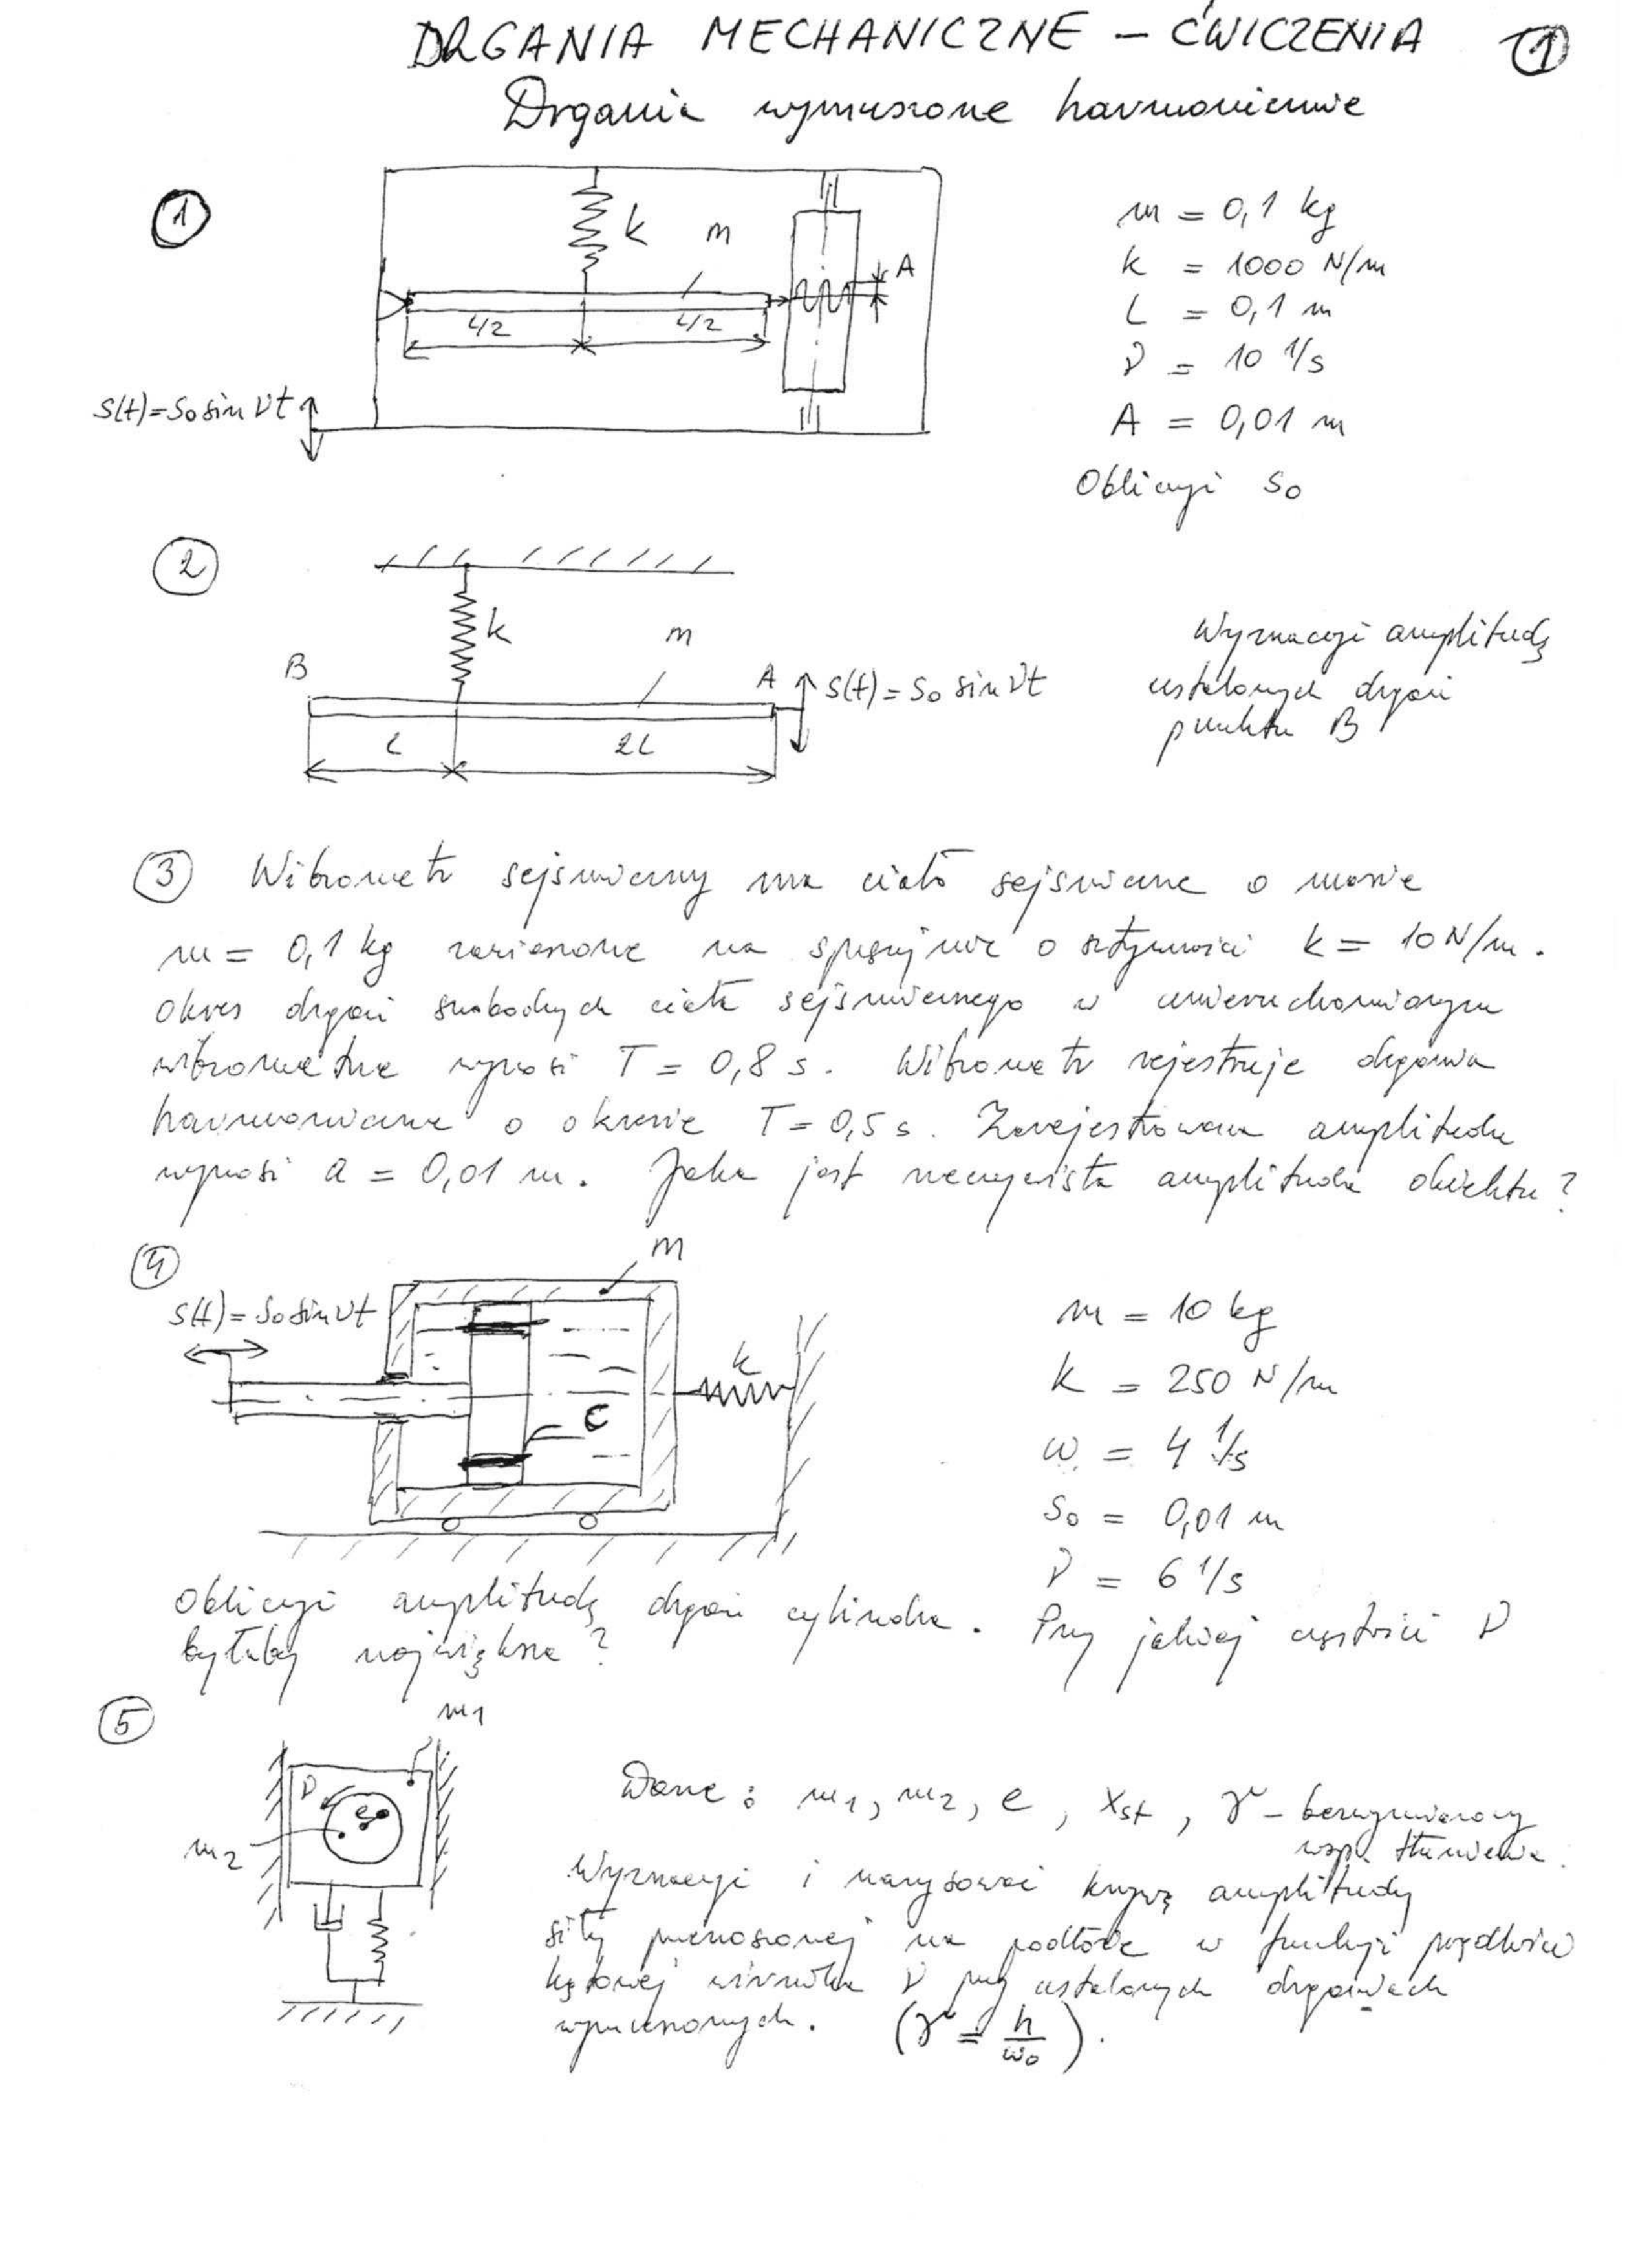 DRGANIA MECHANICZNE – ĆWICZENIA ①
Drgania wymuszone harmonicznie
①
k
m
A
L/2
L/2
S(t)=S₀ sin νt
m = 0,1 kg
k = 1000 N/m
L = 0,1 m
ν = 10 1/s
A = 0,01 m
Obliczyć S₀
②
k
m
B
A
S(t) = S₀ sin νt
L
2L
Wyznaczyć amplitudę
ustalonych drgań
punktu B
③ Wibrometr sejsmiczny ma ciało sejsmiczne o masie
m = 0,1 kg zawieszone na sprężynie o sztywności k = 10 N/m.
Okres drgań swobodnych ciała sejsmicznego w unieruchomionym
wibrometrze wynosi T = 0,8 s. Wibrometr rejestruje drgania
harmoniczne o okresie T = 0,5 s. Zarejestrowana amplituda
wynosi a = 0,01 m. Jaka jest rzeczywista amplituda obiektu?
④
m
S(t) = S₀ sin νt
k
c
m = 10 kg
k = 250 N/m
ω = 4 1/s
S₀ = 0,01 m
ν = 6 1/s
Obliczyć amplitudę drgań cylindra. Przy jakiej częstości ν
byłaby największa?
⑤
m₁
ν
e
m₂
Dane : m₁, m₂, e, xst, γ – bezwymiarowy
wsp. tłumienia.
Wyznaczyć i narysować krzywą amplitudy
siły przenoszonej na podłoże w funkcji prędkości
kątowej wirnika ν przy ustalonych drganiach
wymuszonych. (γ = h/ω₀).